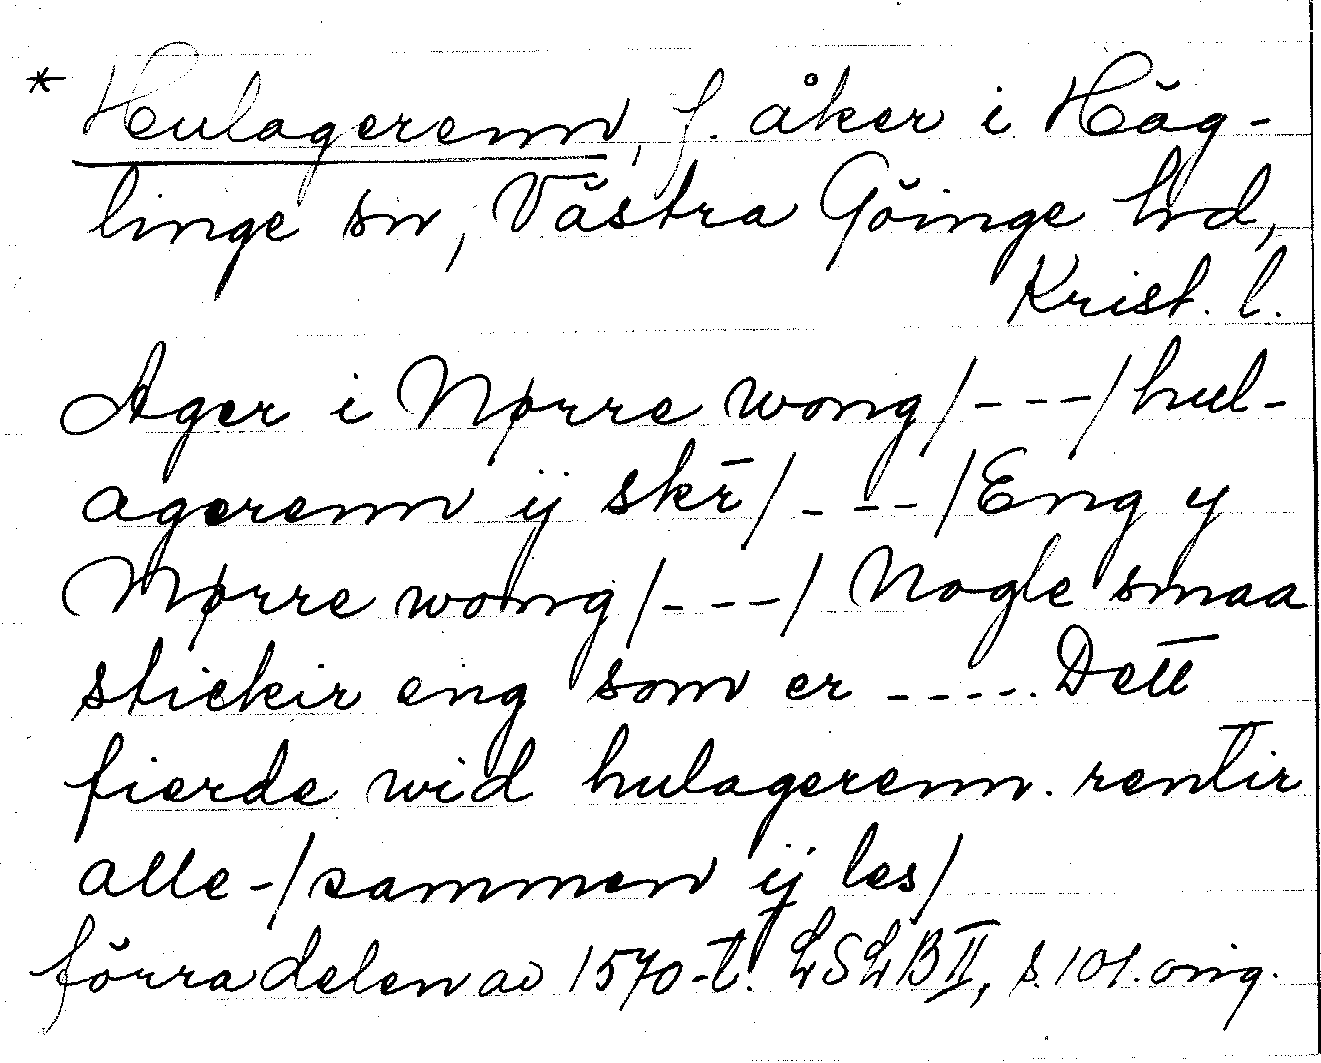 * Hulagerenn, f. åker i Häg-
linge sn, Västra Göinge hd,
Krist. l.
Ager i Nørre wong/---/hul-
agerenn ij skr̄/---/Eng y
Nørre wong/---/Nogle smaa
stickir eng som er ----. Dett
fierde wid hulagerenn. rentir
alle-/sammen ij les/
förra delen av 1570-t. LSLB II, s. 101. orig.